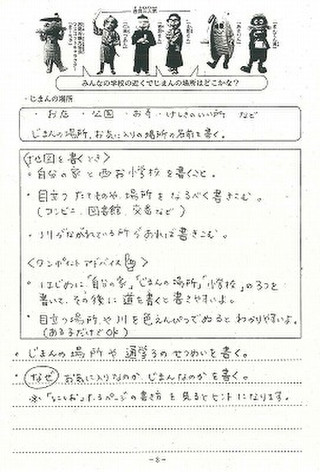 みんなの学校の近くでじまんの場所はどこかな？
・じまんの場所
・お店 ・公園 ・お寺 ・けしきのいい所 など
じまんの場所、お気に入りの場所の名前を書く。
〈地図を書くとき〉
・自分の家と西お学校を書くこと。
・目立つたてものや場所をなるべく書きこむ。
(コンビニ、図書館、交番など)
・川がながれている所があれば書きこむ。
〈ワンポイントアドバイス〉
・はじめに「自分の家」「じまんの場所」「小学校」の3つを
書いて、その後に道を書くと書きやすいよ。
・目立つ場所や川を色えんぴつでぬるとわかりやすいよ。
(あるろだけでOK)
・じまんの場所や通学ろのせつめいを書く。
・なぜお気に入りなのか、じまんなのかを書く。
ページの書き方を見るとヒントになります。
-8-